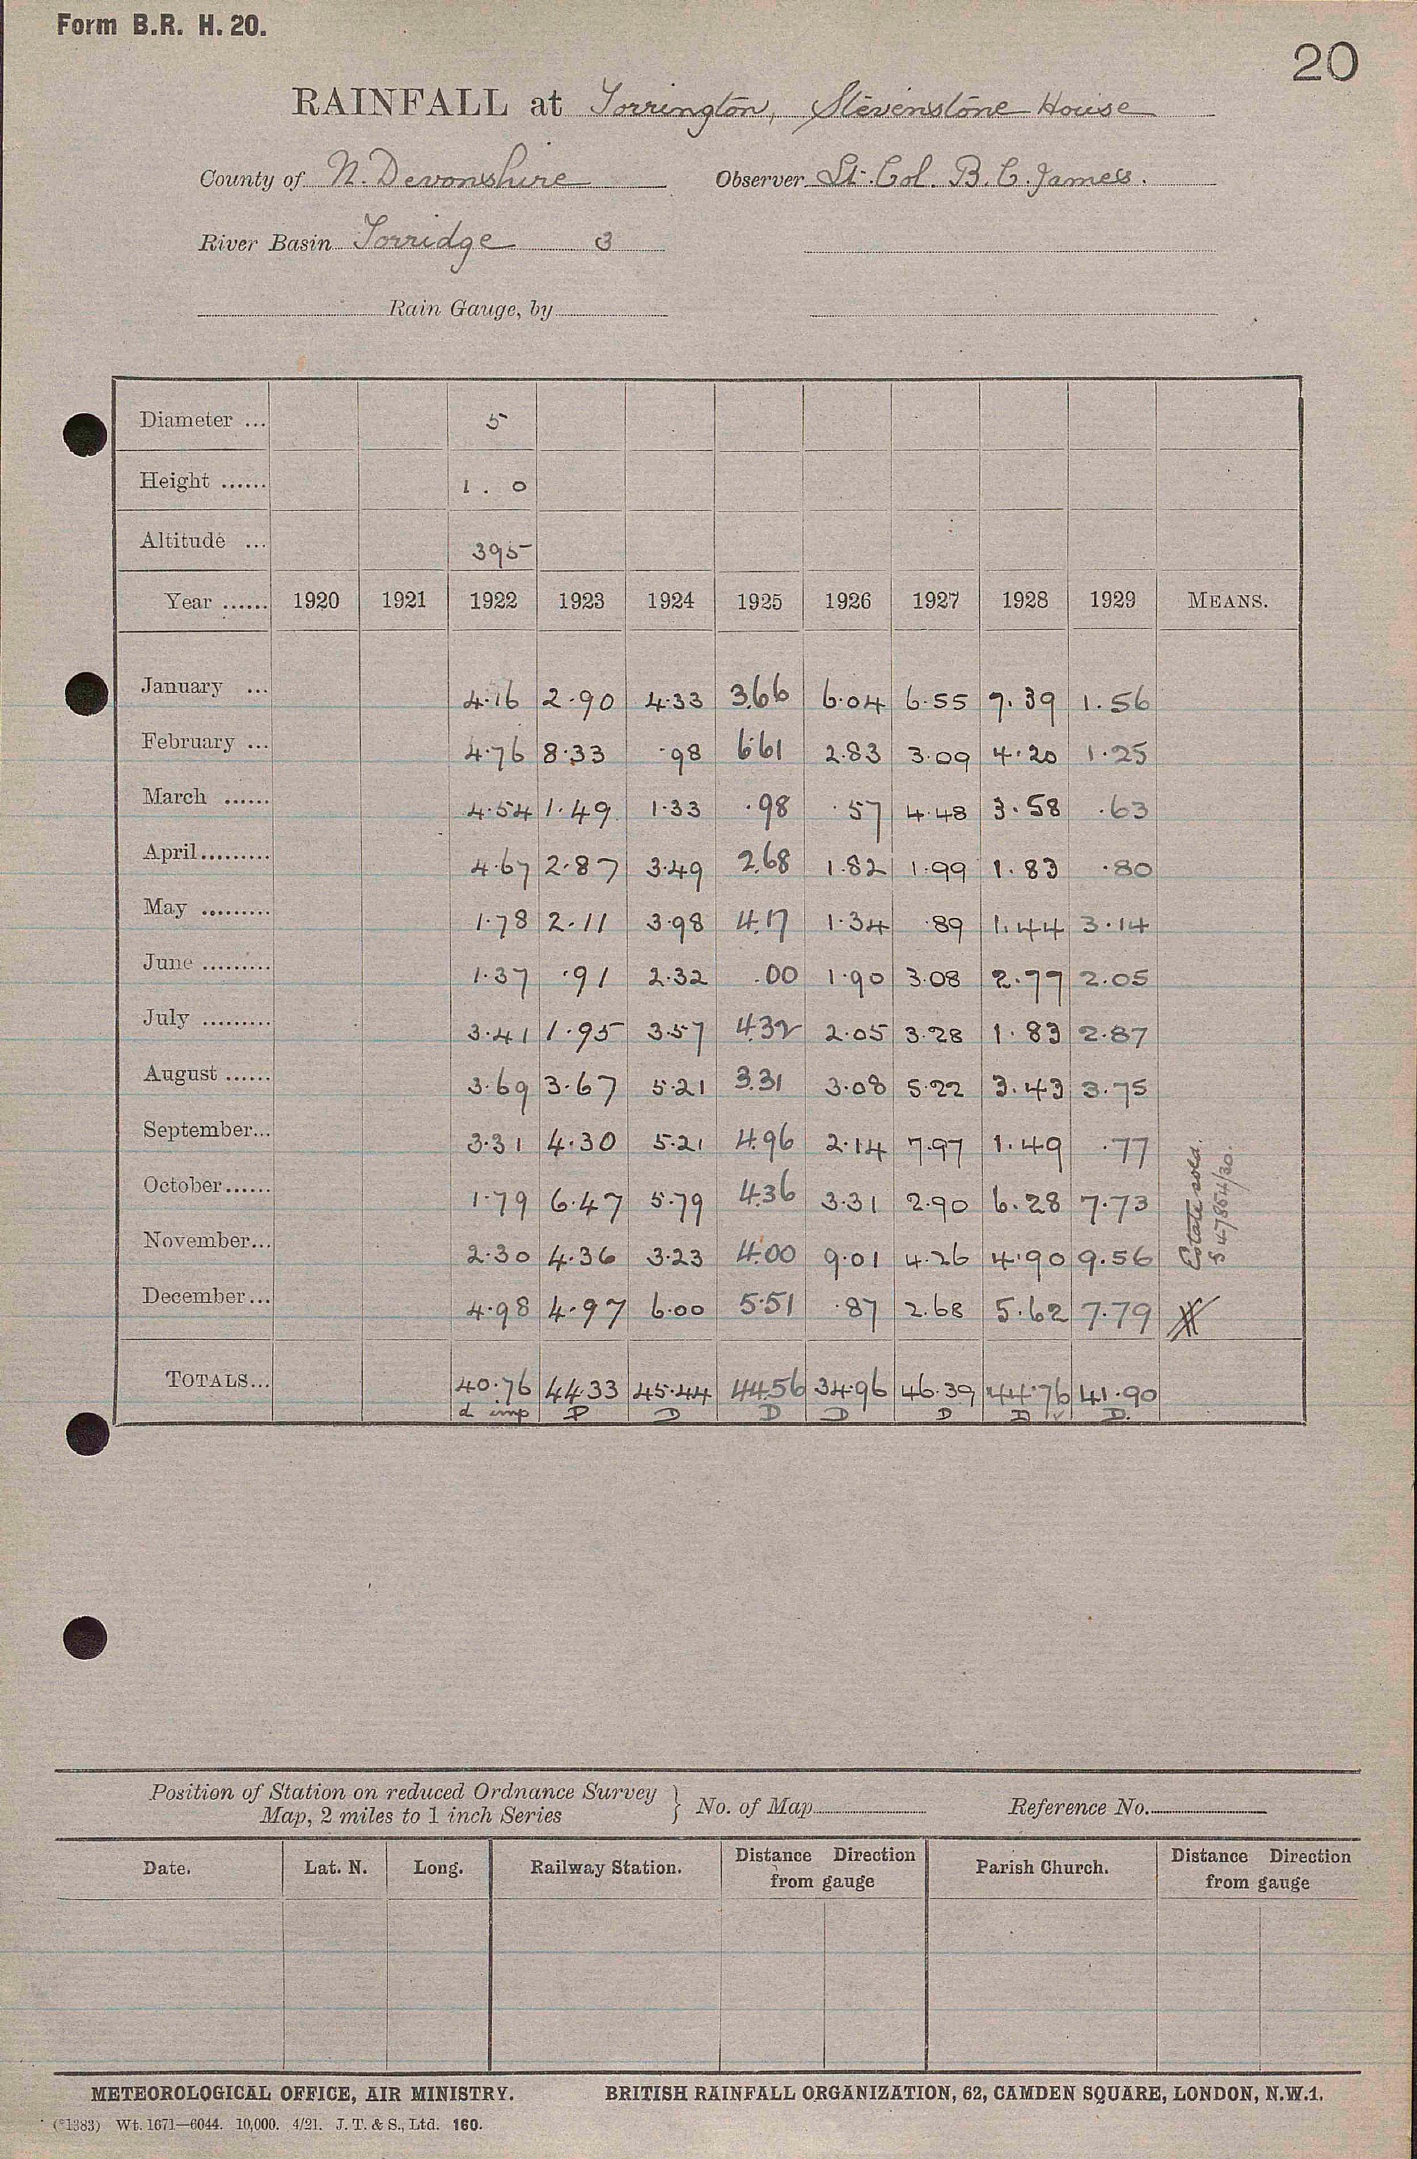 Form B.R. H. 20.
20
RAINFALL at Torrington, Stevenstone House
County of N. Devonshire Observer Lt. Col. B. C. James.
River Basin Torridge 3
Rain Gauge, by
Diameter ... 5
Height ...... 1 . 0
Altitude ... 395
Year ...... 1920 1921 1922 1923 1924 1925 1926 1927 1928 1929 MEANS.
January ... 4.16 2.90 4.33 3.66 6.04 6.55 7.39 1.56
February ... 4.76 8.33 .98 6.61 2.83 3.09 4.20 1.25
March ...... 4.54 1.49 1.33 .98 .57 4.48 3.58 .63
April......... 4.67 2.87 3.49 2.68 1.82 1.99 1.83 .80
May ......... 1.78 2.11 3.98 4.17 1.34 .89 1.44 3.14
June ......... 1.37 .91 2.32 .00 1.90 3.08 2.77 2.05
July ......... 3.41 1.95 3.57 4.32 2.05 3.28 1.83 2.87
August ...... 3.69 3.67 5.21 3.31 3.08 5.22 3.43 3.75
September... 3.31 4.30 5.21 4.96 2.14 7.97 1.49 .77
October...... 1.79 6.47 5.79 4.36 3.31 2.90 6.28 7.73
November... 2.30 4.36 3.23 4.00 9.01 4.26 4.90 9.56
December... 4.98 4.97 6.00 5.51 .87 2.68 5.62 7.79
Estate sold.
S 47854/30.
TOTALS... 40.76 44.33 45.44 44.56 34.96 46.39 44.76 41.90
d imp D D D D D D v D.
Position of Station on reduced Ordnance Survey
Map, 2 miles to 1 inch Series } No. of Map Reference No.
Date. Lat. N. Long. Railway Station. Distance Direction from gauge Parish Church. Distance Direction from gauge
METEOROLOGICAL OFFICE, AIR MINISTRY. BRITISH RAINFALL ORGANIZATION, 62, CAMDEN SQUARE, LONDON, N.W.1.
(*1383) Wt. 1671—6044. 10,000. 4/21. J. T. & S., Ltd. 160.